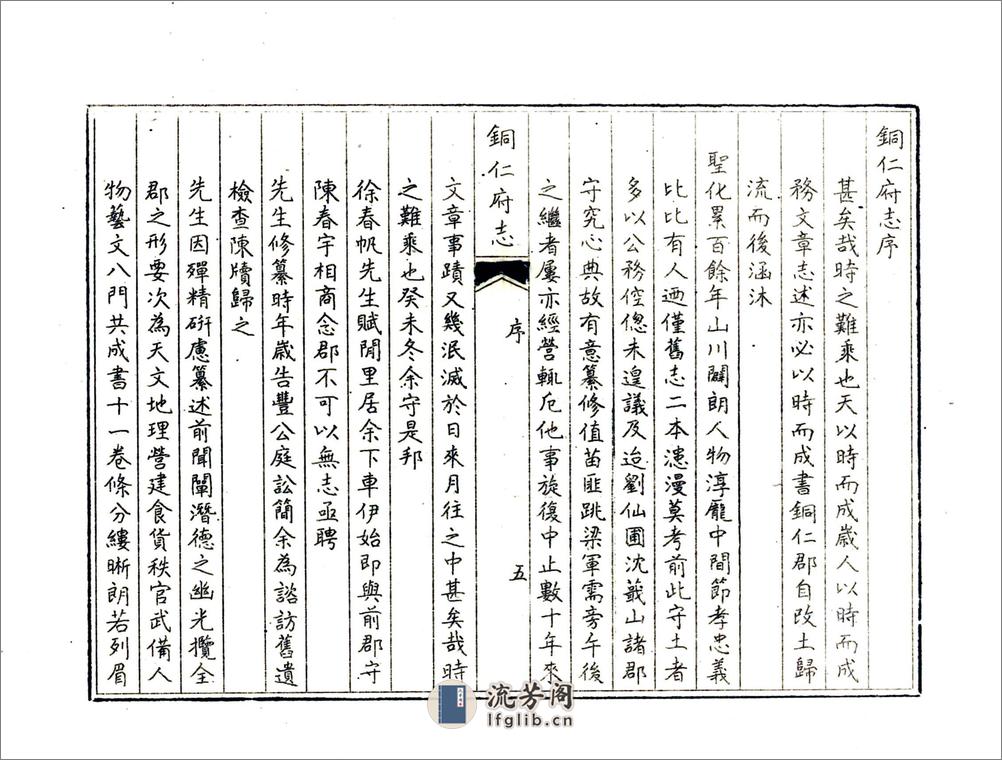 銅仁府志序
甚矣哉時之難乘也天以時而成歲人以時而成
務文章志述亦必以時而成書銅仁郡自改土歸
流而後涵沐
聖化累百餘年山川闢朗人物淳龐中間節孝忠義
比比有人迺僅舊志二本漶漫莫考前此守土者
多以公務倥傯未遑議及迨劉仙圃沈蕺山諸郡
守究心典故有意纂修值苗匪跳梁軍需旁午後
之繼者屢亦經營輒厄他事旋復中止數十年來
銅仁府志
序
五
文章事蹟又幾泯滅於日來月往之中甚矣哉時
之難乘也癸未冬余守是邦
徐春帆先生賦閒里居余下車伊始即與前郡守
陳春宇相商念郡不可以無志亟聘
先生修纂時年歲告豐公庭訟簡余為諮訪舊遺
檢查陳牘歸之
先生因殫精研慮纂述前聞闡潛德之幽光攬全
郡之形要次為天文地理營建食貨秩官武備人
物藝文八門共成書十一卷條分縷晰朗若列眉
流芳阁
lfglib.cn